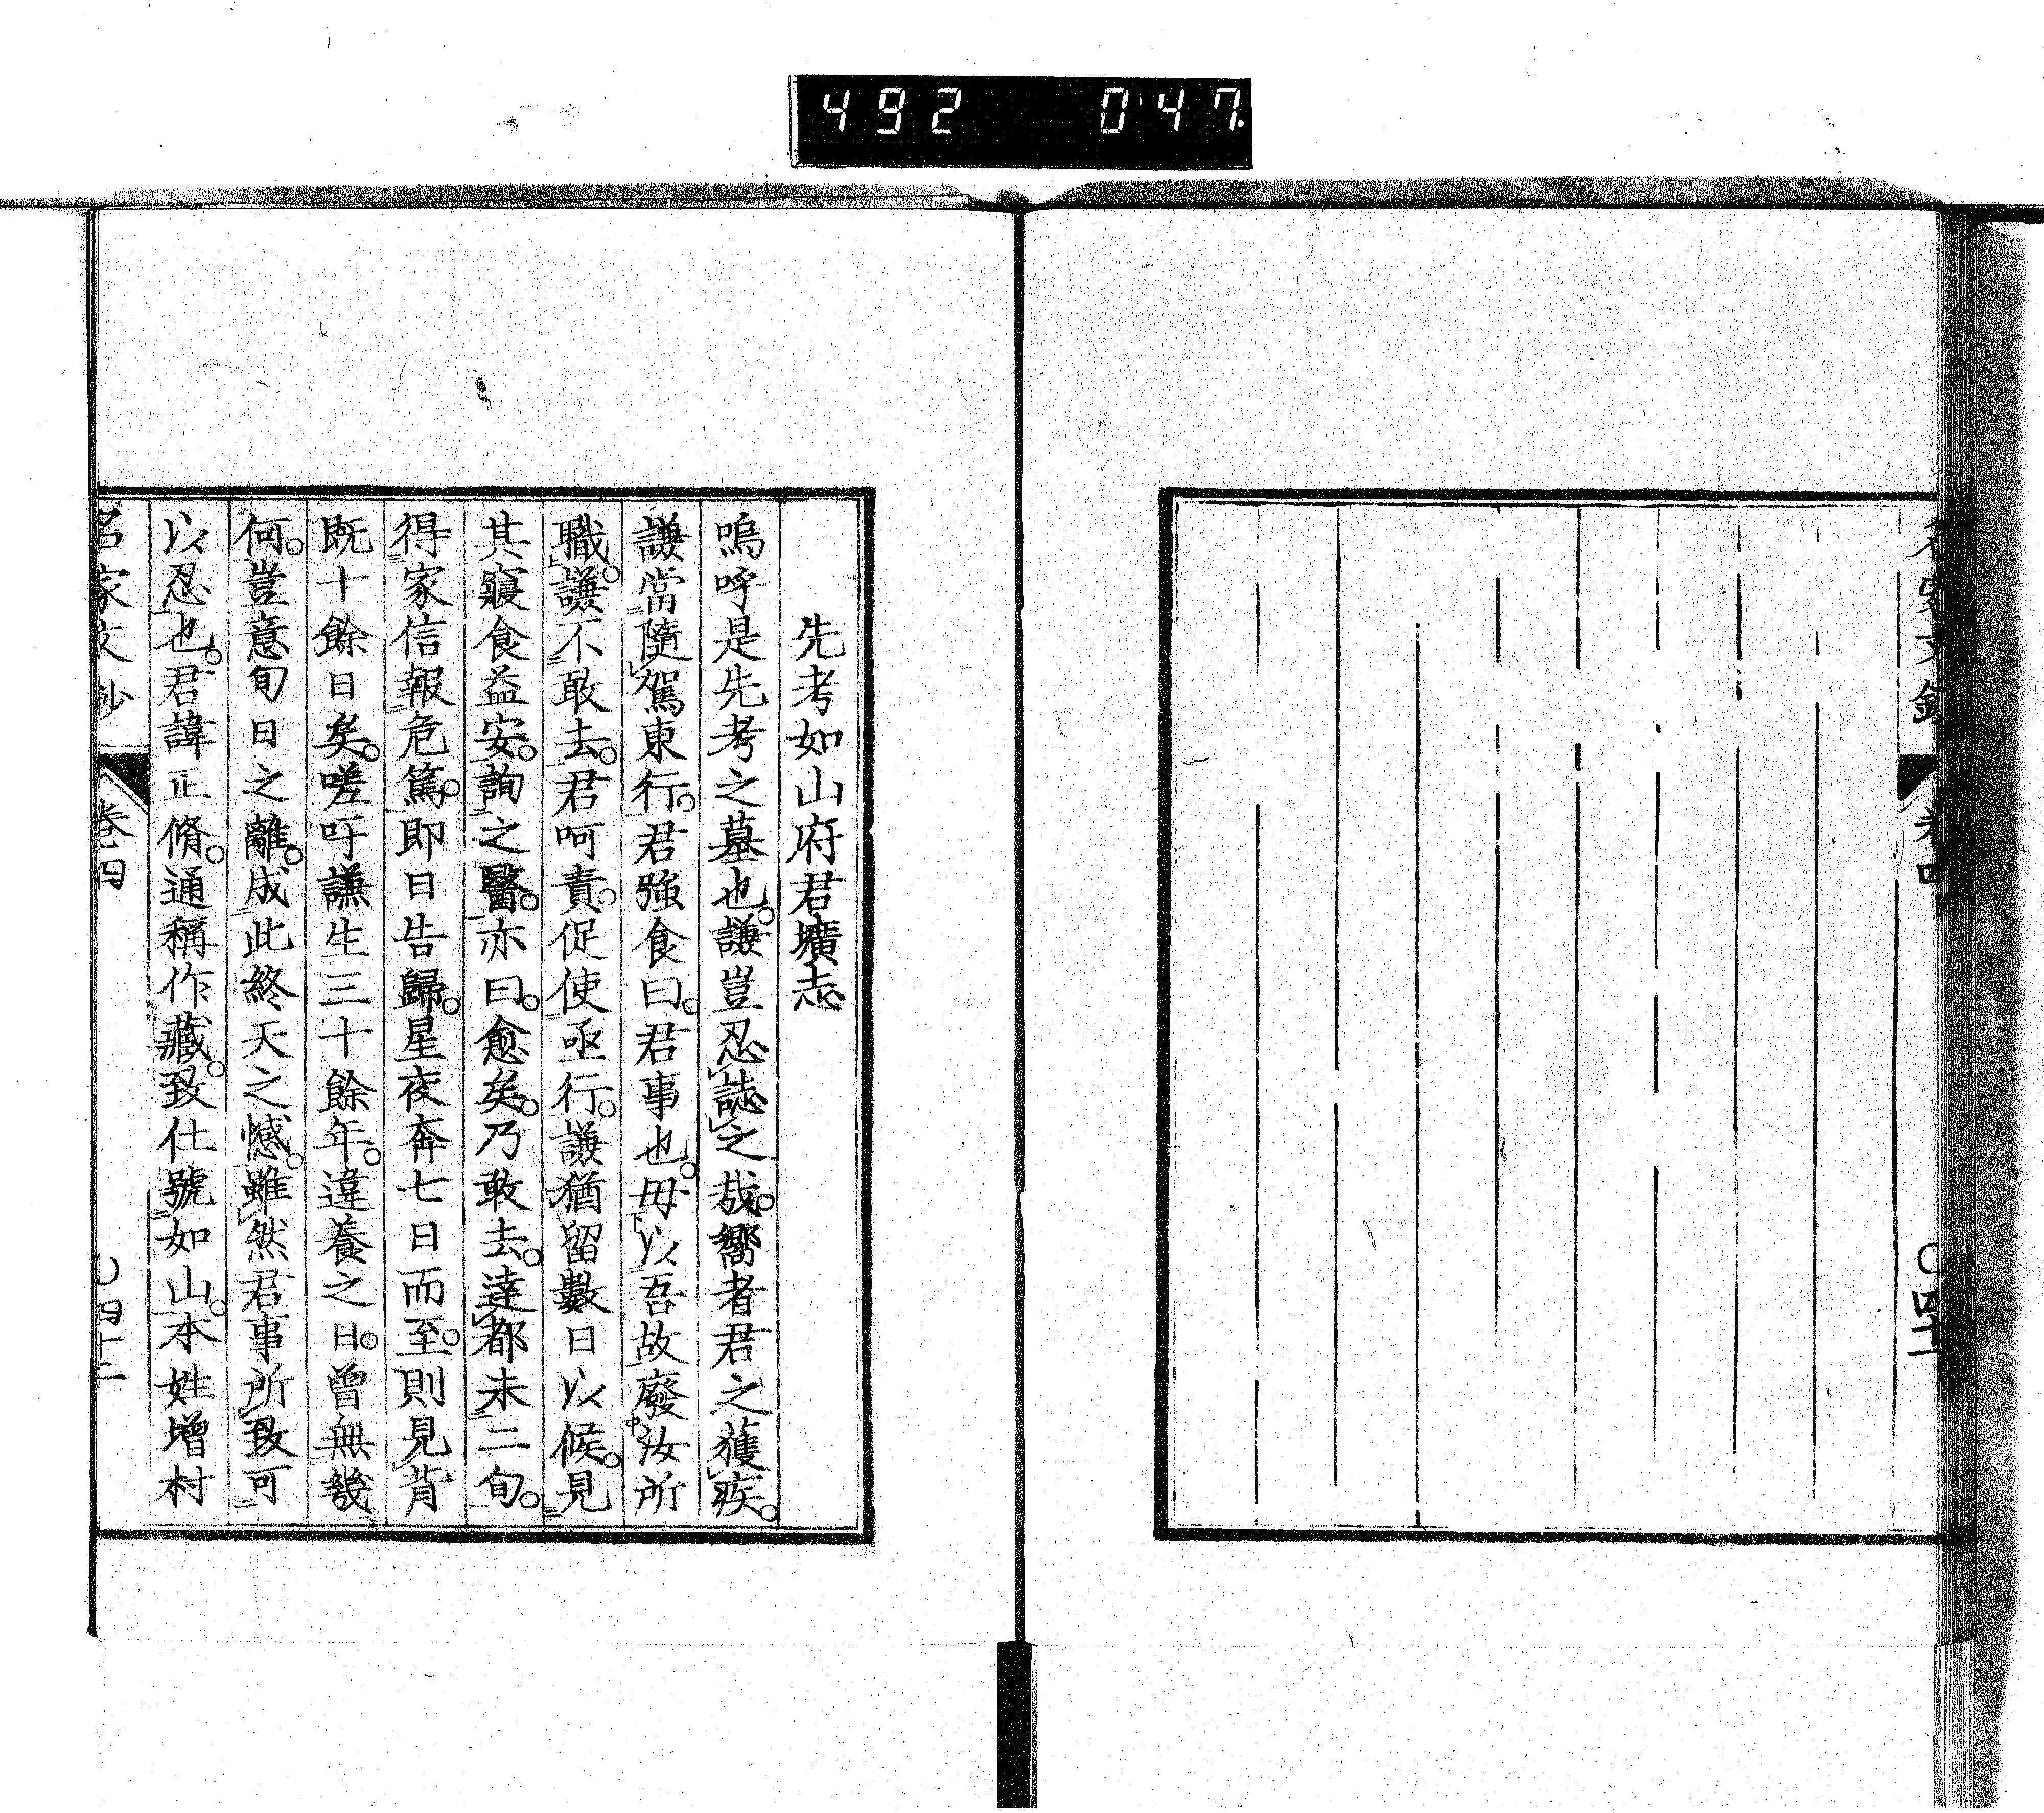 492 047
名家文鈔 卷四 〇四十一
先考如山府君壙志
嗚呼是先考之墓也。謙豈忍誌之哉。嚮者君之獲疾。
謙當隨駕東行。君強食曰。君事也。毋以吾故廢汝所
職。謙不敢去。君呵責。促使亟行。謙猶留數日以候。見
其寢食益安。詢之醫。亦曰。愈矣。乃敢去。達都未二旬。
得家信報危篤。即日告歸。星夜奔七日而至。則見背
既十餘日矣。嗟吁謙生三十餘年。違養之日。曾無幾
何。豈意旬日之離。成此終天之憾。雖然君事所致可
以忍也。君諱正脩。通稱作藏。致仕號如山。本姓增村
名家文鈔 卷四 〇四十二